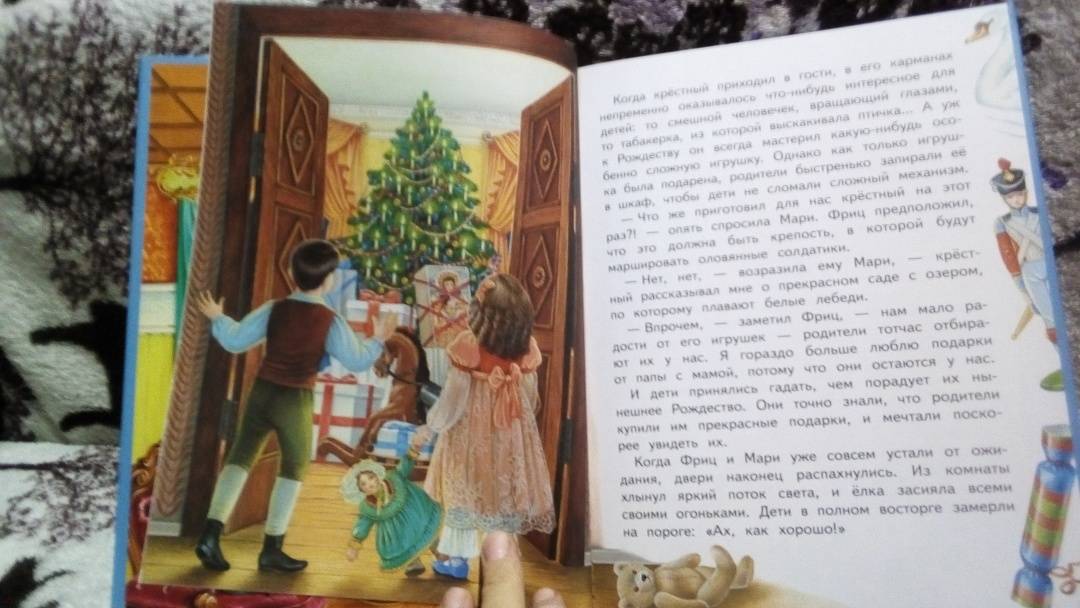 Когда крёстный приходил в гости, в его карманах
непременно оказывалось что-нибудь интересное для
детей: то смешной человечек, вращающий глазами,
то табакерка, из которой выскакивала птичка... А уж
к Рождеству он всегда мастерил какую-нибудь осо-
бенно сложную игрушку. Однако как только игруш-
ка была подарена, родители быстренько запирали её
в шкаф, чтобы дети не сломали сложный механизм.
— Что же приготовил для нас крёстный на этот
раз?! — опять спросила Мари. Фриц предположил,
что это должна быть крепость, в которой будут
маршировать оловянные солдатики.
— Нет, нет, — возразила ему Мари, — крёст-
ный рассказывал мне о прекрасном саде с озером,
по которому плавают белые лебеди.
— Впрочем, — заметил Фриц, — нам мало ра-
дости от его игрушек — родители тотчас отбира-
ют их у нас. Я гораздо больше люблю подарки
от папы с мамой, потому что они остаются у нас.
И дети принялись гадать, чем порадует их ны-
нешнее Рождество. Они точно знали, что родители
купили им прекрасные подарки, и мечтали поско-
рее увидеть их.
Когда Фриц и Мари уже совсем устали от ожи-
дания, двери наконец распахнулись. Из комнаты
хлынул яркий поток света, и ёлка засияла всеми
своими огоньками. Дети в полном восторге замерли
на пороге: «Ах, как хорошо!»